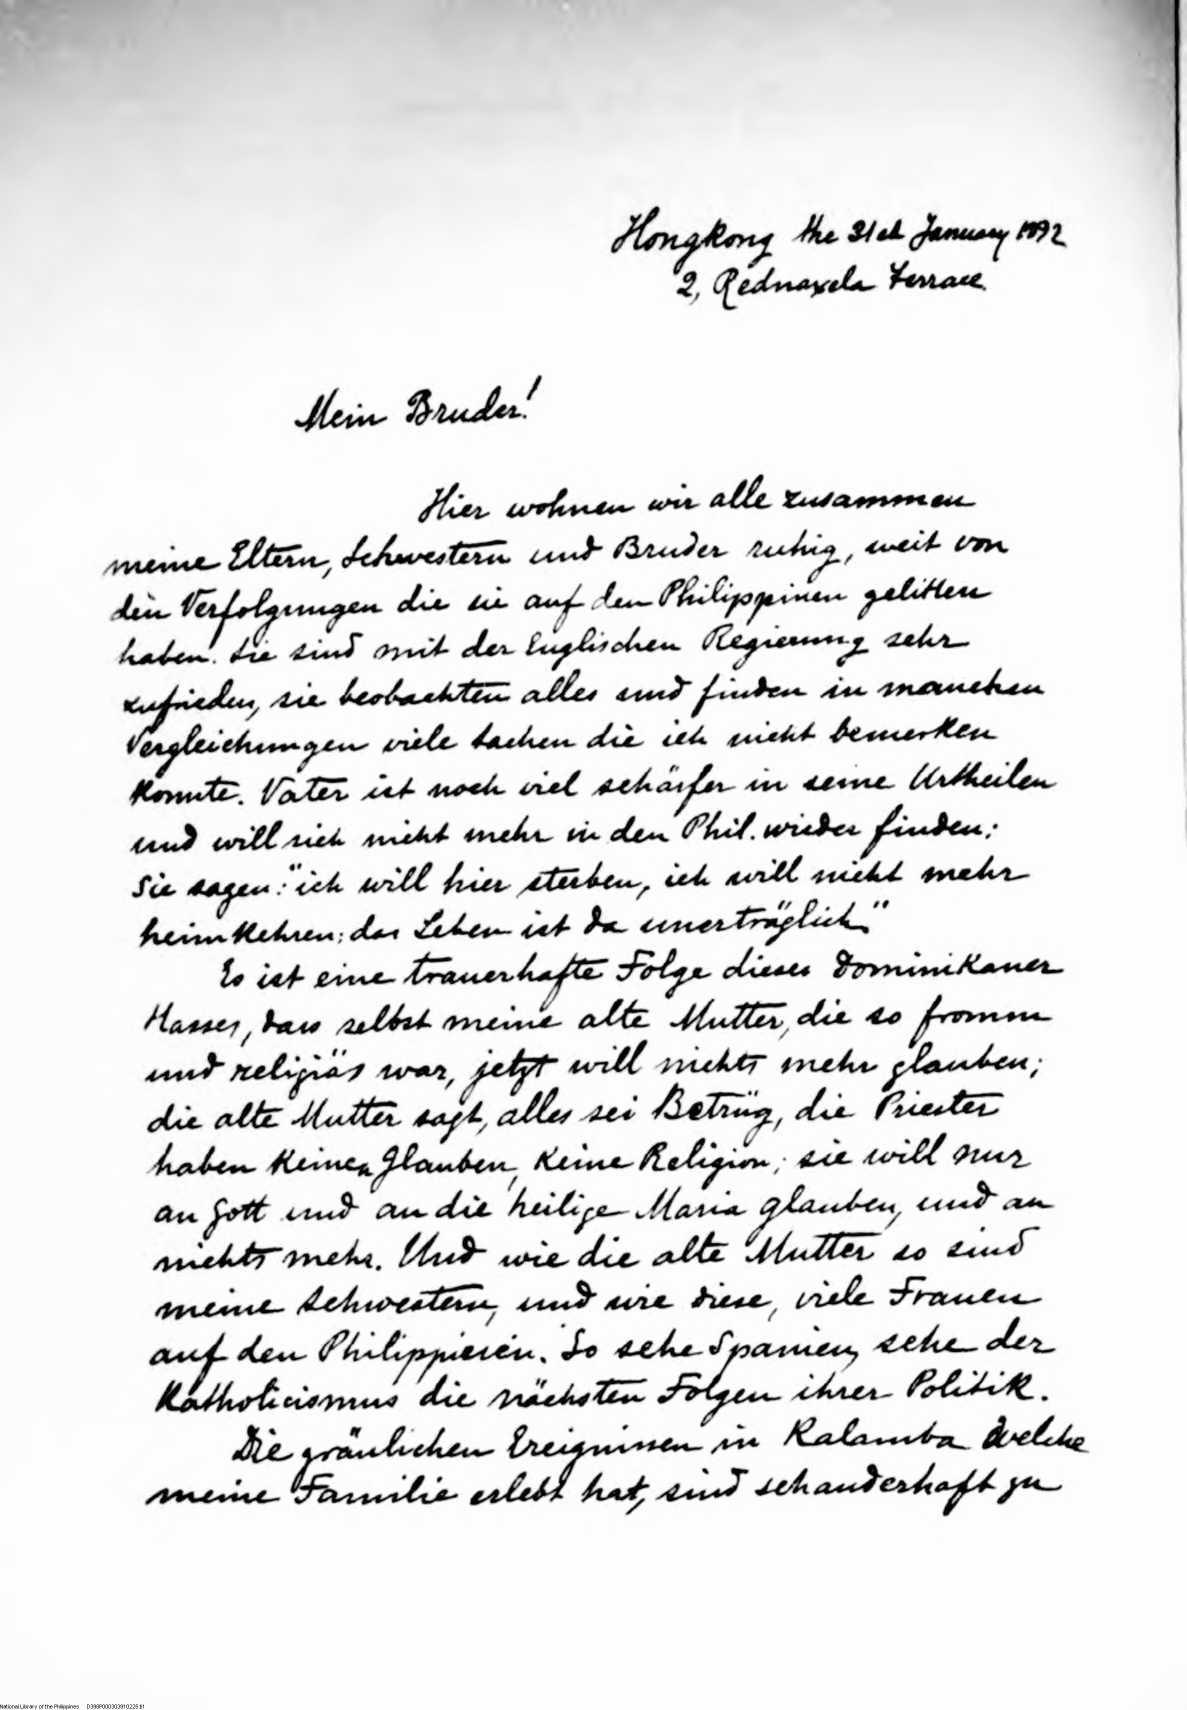 Hongkong the 31st January 1892
2, Rednaxela Terrace.
Mein Bruder!
Hier wohnen wir alle zusammen
meine Eltern, Schwestern und Bruder ruhig, weit von
den Verfolgungen die sie auf den Philippinen gelitten
haben. Sie sind mit der Englischen Regierung sehr
zufrieden, sie beobachten alles und finden in manchen
Vergleichungen viele Sachen die ich nicht bemerken
konnte. Vater ist noch viel schärfer in seine Urtheilen
und will sich nicht mehr in den Phil. wieder finden;
Sie sagen: "ich will hier sterben, ich will nicht mehr
heimkehren; das Leben ist da unerträglich"
Es ist eine trauerhafte Folge dieses Dominikaner
Hasses, dass selbst meine alte Mutter, die so fromm
und religiös war, jetzt will nichts mehr glauben;
die alte Mutter sagt, alles sei Betrüg, die Priester
haben keinen Glauben, keine Religion; sie will nur
an Gott und an die heilige Maria glauben, und an
nichts mehr. Und wie die alte Mutter so sind
meine Schwestern, und wie diese, viele Frauen
auf den Philippinen. So sehe Spanien, sehe der
Katholicismus die nächsten Folgen ihrer Politik.
Die gräulichen Ereignissen in Kalamba welche
meine Familie erlebt hat, sind schauderhaft zu
National Library of the Philippines